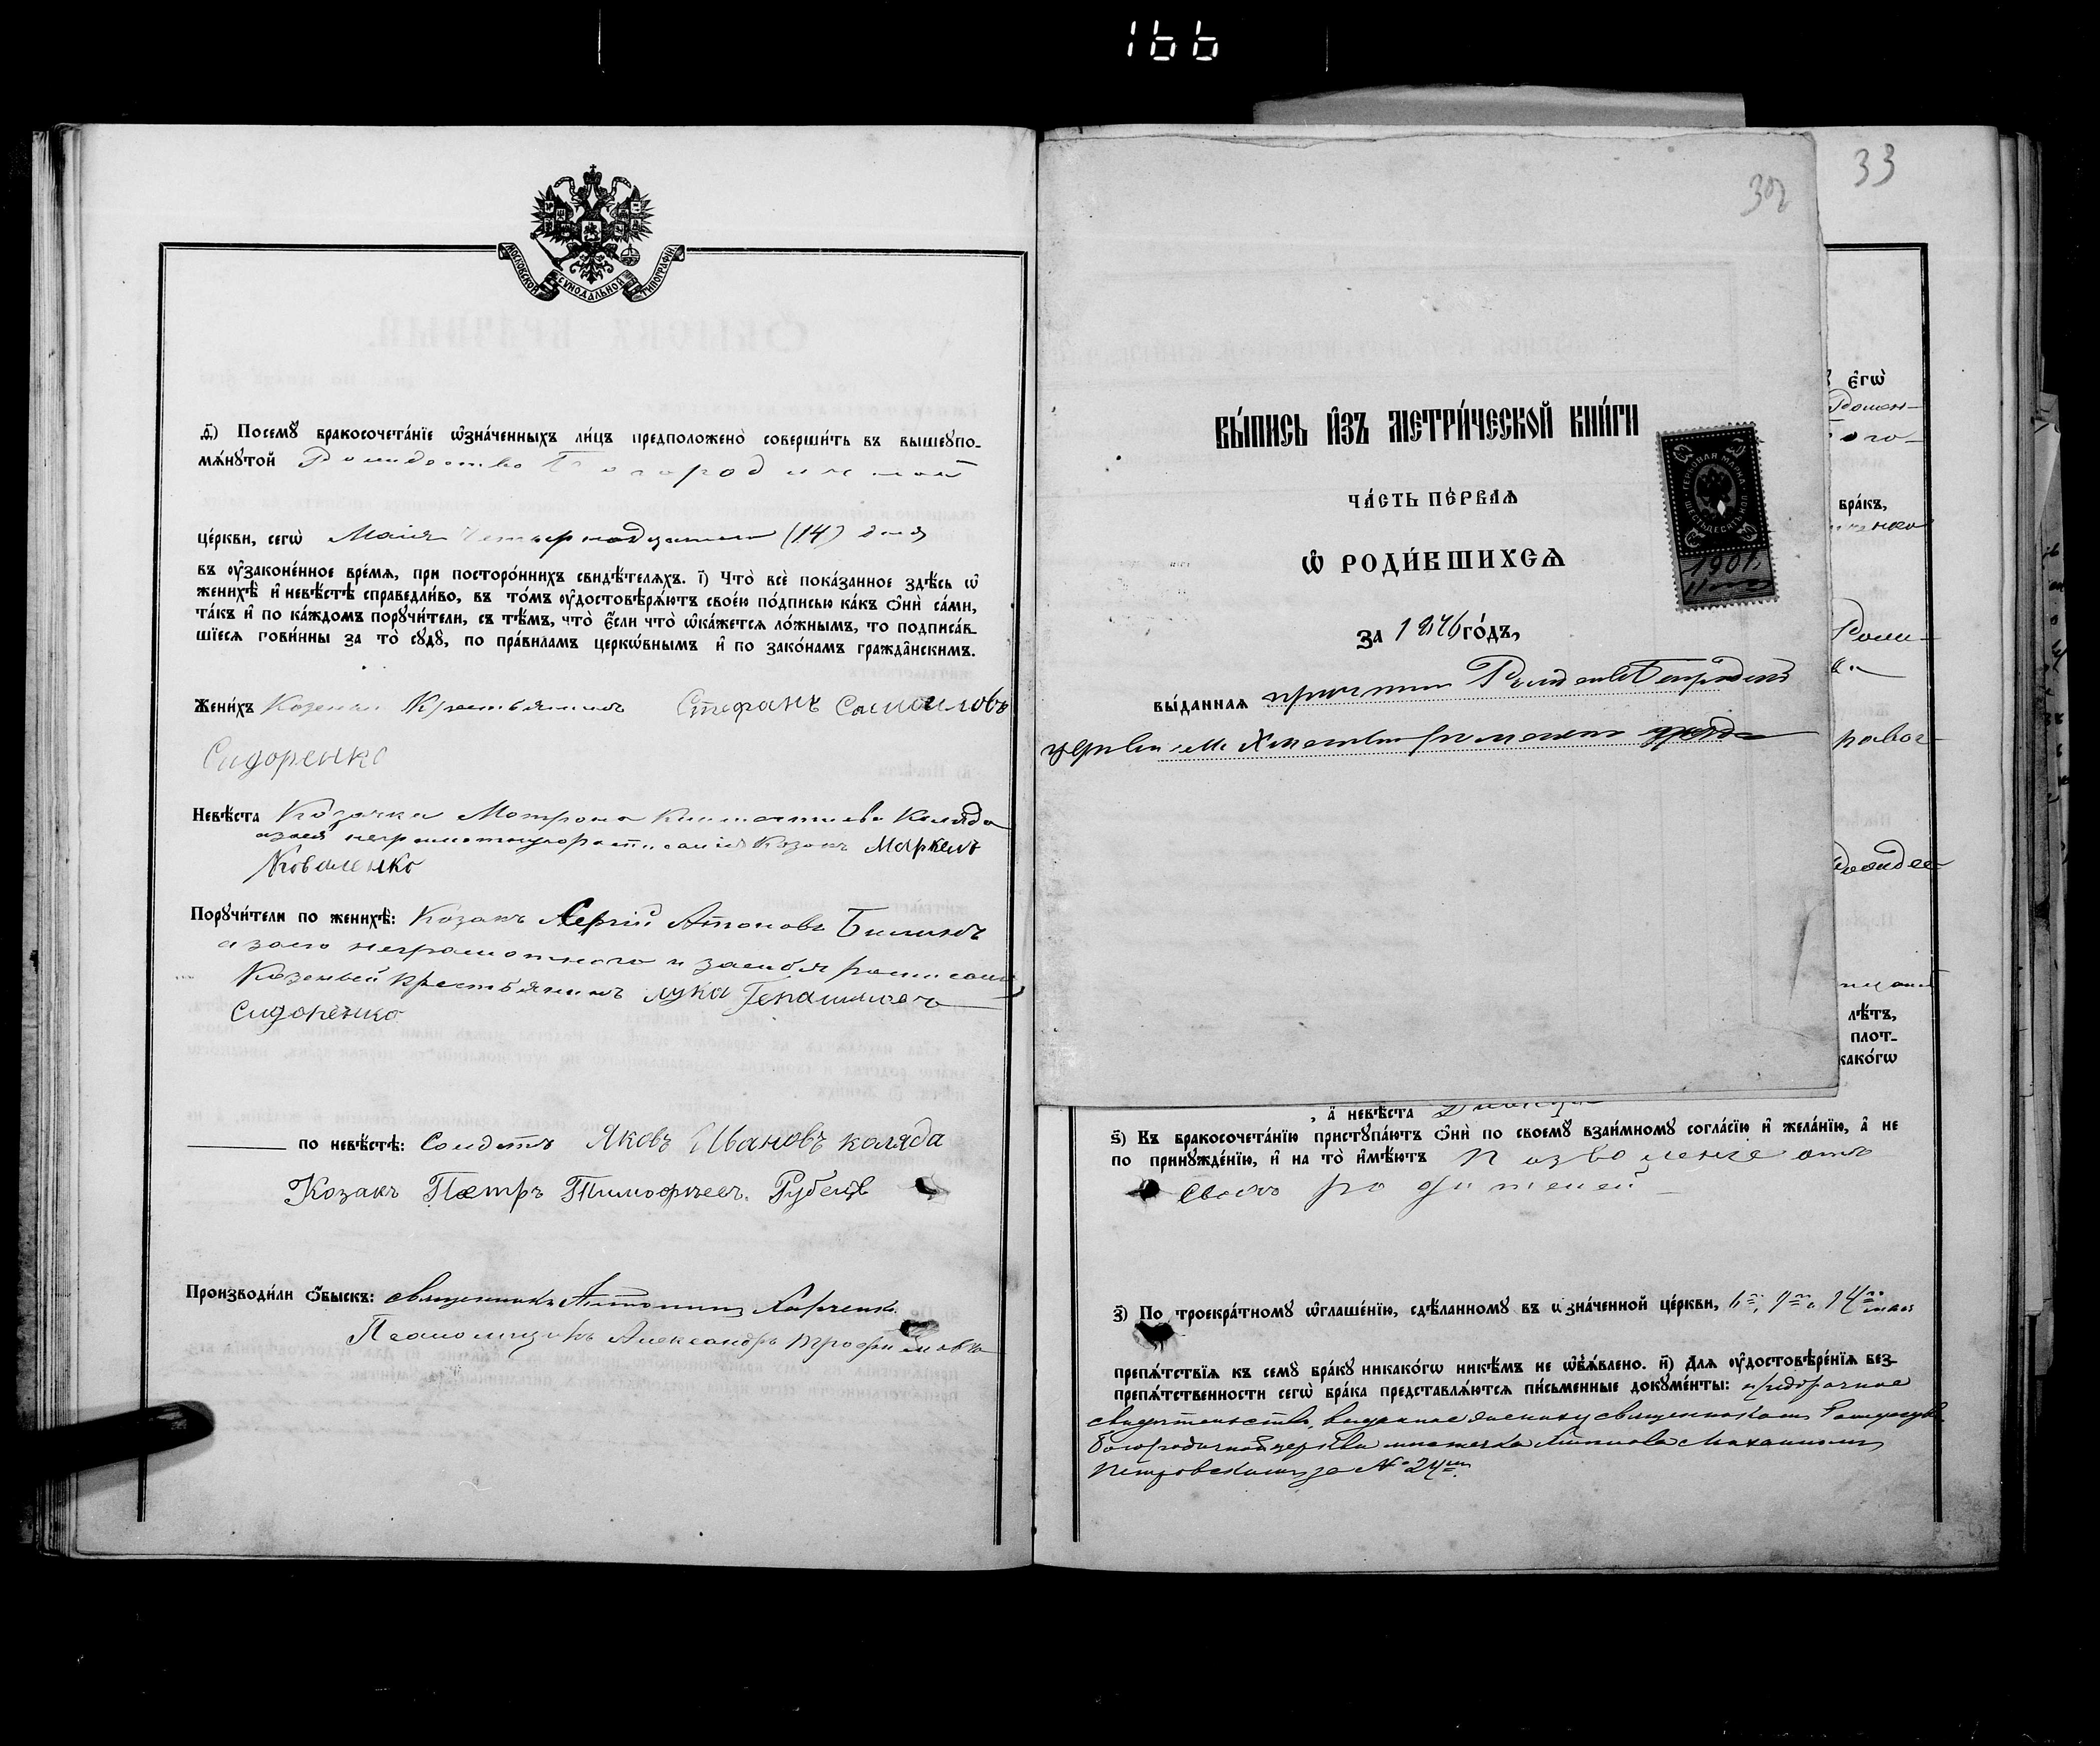 166
МОСКОВСКОЙ СѴНОДАЛЬНОЙ ТИПОГРАФІИ.
д҃) Посемꙋ бракосочета́нїе ѡ҆зна́ченныхъ ли́цъ предположено̀ соверши́ть въ вышеꙋпо-
мѧ́нꙋтой Рождество Богородичной
це́ркви, сегѡ̀ Маія четырнадцатаго (14) дня
въ ᲂу҆зако́не́нное вре́мѧ, при посторо́ннихъ свидѣ́телѧхъ. і҃) Что̀ всѐ пока́занное здѣ́сь ѡ҆
женихѣ̀ и҆ невѣ́стѣ справедли́во, въ то́мъ ᲂу҆достовѣрѧ́ютъ свое́ю по́дписью ка́къ ѻ҆нѝ са́ми,
та́къ и҆ по ка́ждомъ порꙋчи́тели, съ тѣ́мъ, что̀ є҆́сли что̀ ѡ҆ка́жетсѧ ло́жнымъ, то подписа́в-
шїесѧ пови́нны за то̀ сꙋдꙋ̀, по пра́виламъ церкѡ́внымъ и҆ по зако́намъ гражда̂нскимъ.
Жени́хъ Козеный Крестьянинъ Стефанъ Самоиловъ
Сидоренко
Невѣ́ста Козачка Матрона Коляда
а за нея неграмотную росписался Козакъ Маркелъ
Коваленко
Порꙋчи́тели по женихѣ̀: Козакъ Сергій Антоновъ Билинъ
а за него неграмотного и за себя росписался
Козеный крестьянинъ Лука Герасимовъ
Сидоренко
по невѣ́стѣ: Солдатъ Яковъ Ивановъ Коляда
Козакъ Петръ Тимофеев. Рубецъ
Производи́ли ѻ҆́быскъ: священникъ Антоній Харченко
Псаломщикъ Александръ Трофимовъ
33
302
ВЫ́ПИСЬ И҆ЗЪ МЕТРИ́ЧЕСКОЙ КНИ́ГИ
ЧА́СТЬ ПЕ́РВАѦ
Ѡ҆ РОДИ́ВШИХСѦ
за 1876 го́дъ,
ГЕРБОВАЯ МАРКА ШЕСТЬДЕСЯТЪ КОП.
1901
вы́даннаѧ причтомъ Рождество Богородич
церкви м. роменскаго уѣзда
є҆гѡ̀
Ромен-
бра́къ,
лѣ́тъ,
плот-
како́гѡ
, а҆ невѣ́ста Дѣвица
ѕ҃) Въ бракосочета́нїю пристꙋпа́ютъ ѻ҆нѝ по своемꙋ̀ взаи́мномꙋ согла́сїю и҆ жела́нїю, а҆ не
по принꙋжде́нїю, и҆ на то̀ и҆мѣ́ютъ позволеніе отъ
своихъ родителей
з҃) По троекра́тномꙋ ѡ҆глаше́нїю, сдѣ́ланномꙋ въ ѡ҆зна́ченной це́ркви, 6го, 9го и 14го мая
препѧ́тствїѧ къ семꙋ̀ бра́кꙋ никако́гѡ никѣ́мъ не ѡ҆б̾ѧ́влено. и҃) Длѧ ᲂу҆достовѣре́нїѧ без-
препѧ́тственности сегѡ̀ бра́ка представлѧ́ютсѧ пи́сьменные докꙋме́нты: предбрачное
свидетельство, выданное жениху священникомъ Рождество
Богородичной церкви местечка
Петровскимъ за № 24мъ.